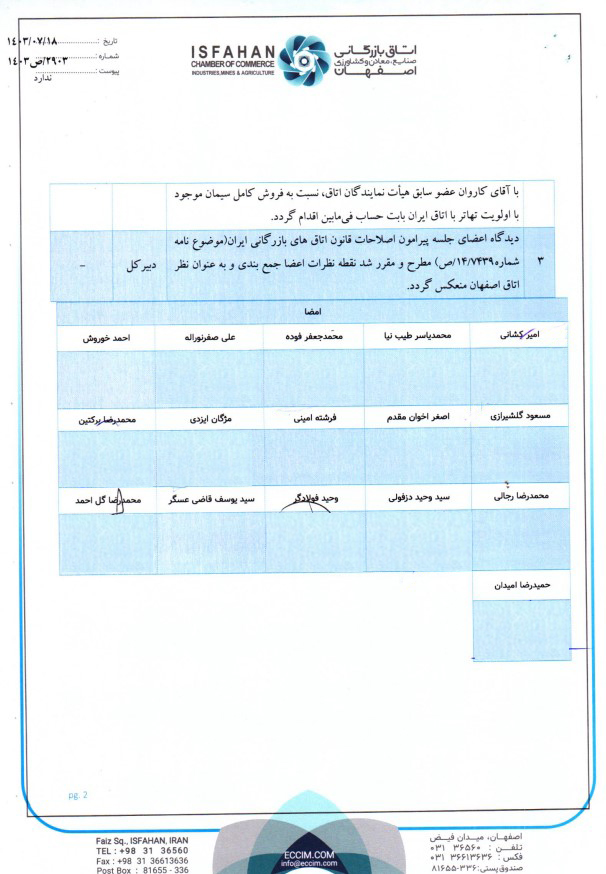 تاریخ : ۱٤۰۳/۰۷/۱۸
شماره : ۲۹۰۳/ص/۱٤۰۳
پیوست : ندارد
ISFAHAN
CHAMBER OF COMMERCE
INDUSTRIES,MINES & AGRICULTURE
اتاق بازرگانی
صنایع، معادن و کشاورزی
اصفهان
با آقای کاروان عضو سابق هیأت نمایندگان اتاق، نسبت به فروش کامل سیمان موجود
با اولویت تهاتر با اتاق ایران بابت حساب فی‌مابین اقدام گردد.
۳ دیدگاه اعضای جلسه پیرامون اصلاحات قانون اتاق های بازرگانی ایران(موضوع نامه
شماره۱۴/۷۴۳۹/ص) مطرح و مقرر شد نقطه نظرات اعضا جمع بندی و به عنوان نظر
اتاق اصفهان منعکس گردد.
دبیر کل
–
امضا
امیر کشانی محمدیاسر طیب نیا محمدجعفر فوده علی صفرنوراله احمد خوروش
مسعود گلشیرازی اصغر اخوان مقدم فرشته امینی مژگان ایزدی محمدرضا برکتین
محمدرضا رجالی سید وحید دزفولی وحید فولادگر سید یوسف قاضی عسگر محمدرضا گل احمد
حمیدرضا امیدان
pg. 2
Faiz Sq., ISFAHAN, IRAN
TEL : +98 31 36560
Fax : +98 31 36613636
Post Box : 81655 - 336
ECCIM.COM
info@eccim.com
اصفهان، میدان فیض
تلفن : ۳۶۵۶۰ ۰۳۱
فکس : ۳۶۶۱۳۶۳۶ ۰۳۱
صندوق پستی: ۳۳۶-۸۱۶۵۵